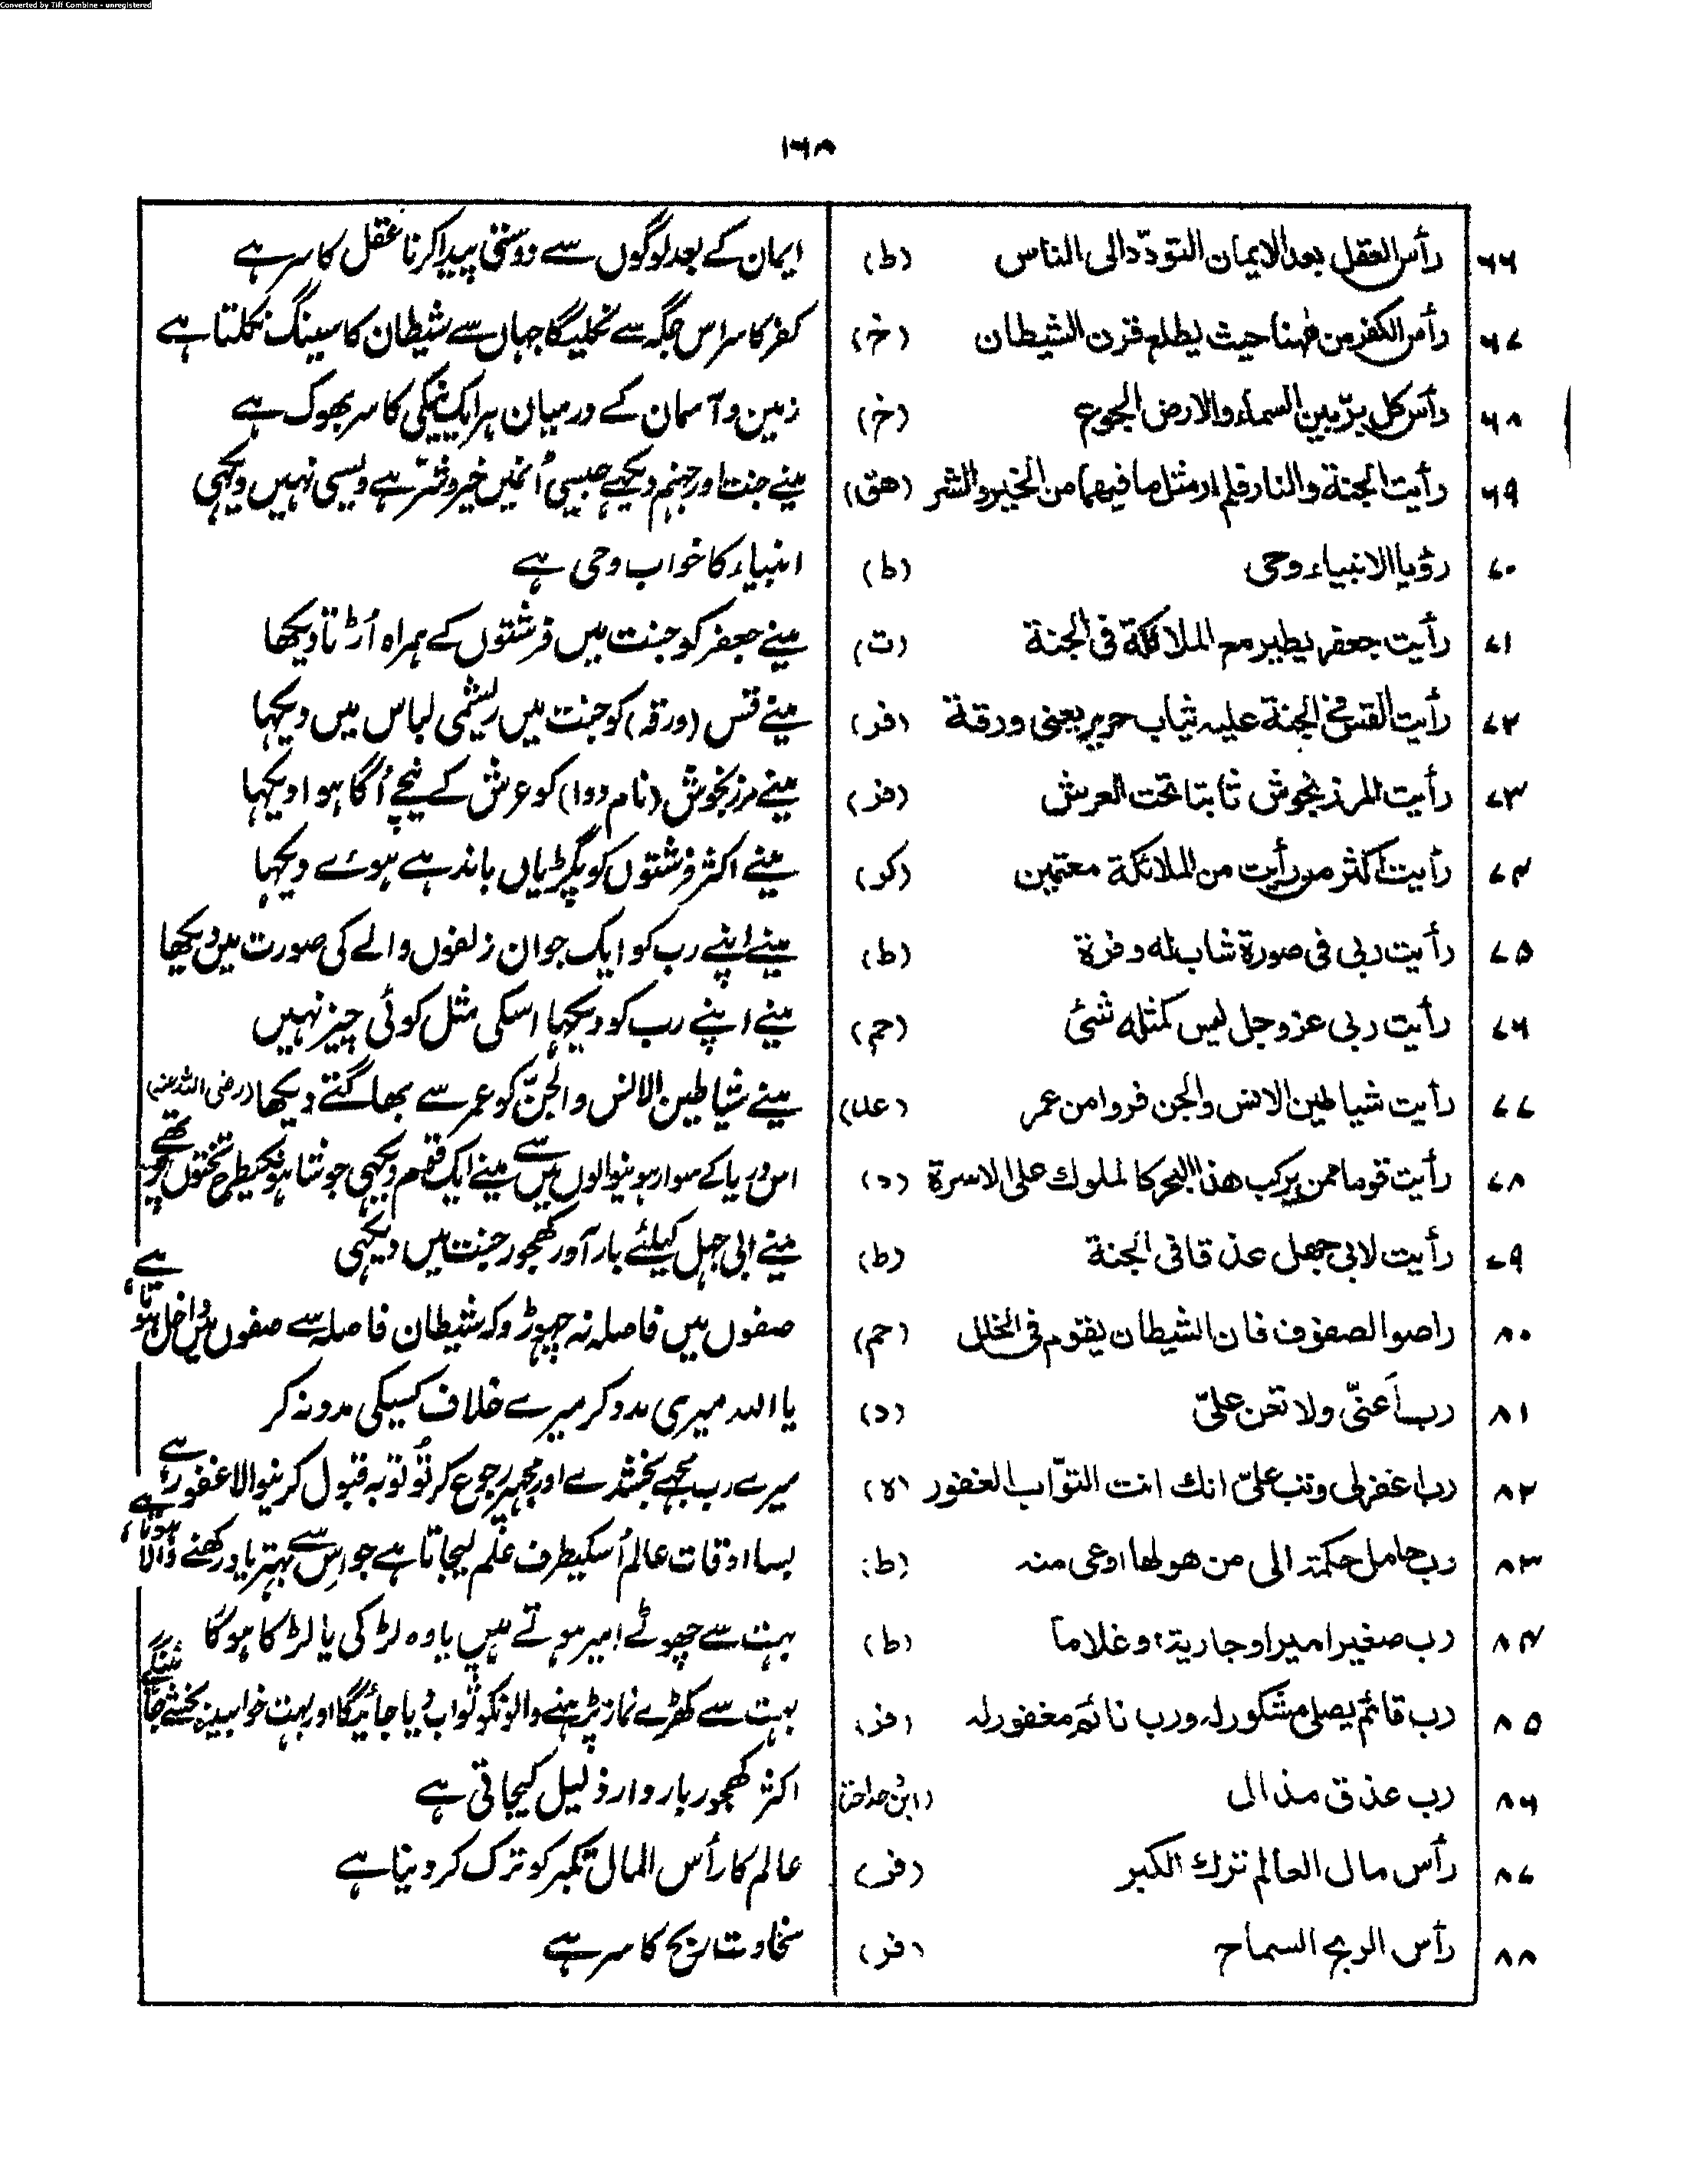 Converted by Tiff Combine - unregistered
۱۶۸
۶۶ رأس العقل بعد الایمان التودّد الی الناس (ط) ایمان کے بعد لوگوں سے دوستی پیدا کرنا عقل کا سر ہے
۶۷ رأس الکفر من ههنا حیث یطلع قرن الشیطان (خ) کفر کا سر اس جگہ سے نکلیگا جہاں سے شیطان کا سینگ نکلتا ہے
۶۸ رأس کل برّ بین السماء والارض الجوع (خ) زمین و آسمان کے درمیان ہر ایک نیکی کا سر بھوک ہے
۶۹ رأیت الجنة والنار فلم ار مثل ما فیهما من الخیر والشر (هق) مینے جنت اور جہنم دیکھے جیسی اُنمیں خیر و شرّ ہے ویسی نہیں دیکھی
۷۰ رؤیا الانبیاء وحی (ط) انبیاء کا خواب وحی ہے
۷۱ رأیت جعفر یطیر مع الملائکة فی الجنة (ت) مینے جعفر کو جنت میں فرشتوں کے ہمراہ اُڑتا دیکھا
۷۲ رأیت القس فی الجنة علیہ ثیاب حریر یعنی ورقة (فر) مینے قس (ورقہ) کو جنت میں ریشمی لباس میں دیکہا
۷۳ رأیت المرزنجوش نابتا تحت العرش (فر) مینے مرزنجوش (نام دوا) کو عرش کے نیچے اُگا ہوا دیکہا
۷۴ رأیت اکثر من رأیت من الملائکة معتمین (کر) مینے اکثر فرشتوں کو پگڑیاں باندہے ہوئے دیکہا
۷۵ رأیت ربی فی صورة شاب له وفرة (ط) مینے اپنے رب کو ایک جوان زلفوں والے کی صورت میں دیکھا
۷۶ رأیت ربی عز وجل لیس کمثله شئ (حم) مینے اپنے رب کو دیکہا اسکی مثل کوئی چیز نہیں
۷۷ رأیت شیاطین الانس والجن فروا من عمر (عد) مینے شیاطین الانس والجنّ کو عمر سے بھاگتے دیکھا (رضی اللہ عنہ)
۷۸ رأیت قوما ممن یرکب هذا البحر کالملوک علی الاسرة (د) اس دریا کے سوار ہونیوالوں میں سے مینے ایک قوم دیکہی جو شاہونکیطرح تختوں پر تھے
۷۹ رأیت لابی جهل عذقا فی الجنة (ط) مینے ابی جہل کیلئے بارآور کھجور جنت میں دیکہی
۸۰ راصوا الصفوف فان الشیطان یقوم فی الخلل (حم) صفوں میں فاصلہ نہ چہوڑو کہ شیطان فاصلہ سے صفوں میں داخل ہوتا ہے
۸۱ رب أعنّی ولا تعن علیّ (د) یا اللہ میری مدد کر میرے خلاف کسیکی مدد نہ کر
۸۲ رب اغفر لی وتب علیّ انک انت التوّاب الغفور (ہ) میرے رب مجہے بخشدے اور مجہپر رجوع کر تُو توبہ قبول کرنیوالا غفور ہے
۸۳ رب حامل حکمة الی من هو لها اوعی منه (ط) بسا اوقات عالم اُسکیطرف علم لیجاتا ہے جو اس سے بہتر یاد رکھنے والا ہوتا ہے
۸۴ رب صغیر امیر او جاریة او غلاما (ط) بہت سے چھوٹے امیر ہوتے ہیں یا وہ لڑکی یا لڑکا ہوگا
۸۵ رب قائم یصلی مشکور له ورب نائم مغفور له (فر) بہت سے کھڑے نماز پڑہنے والونکو ثواب دیا جائیگا اور بہت خوابیدہ بخشے جائینگے
۸۶ رب عذق مذال اکثر کھجور باردار ذلیل کیجاتی ہے
۸۷ رأس مال العالم ترک الکبر (فر) عالم کا رأس المال تکبر کو ترک کر دینا ہے
۸۸ رأس الربح السماح (فر) سخاوت ربح کا سر ہے